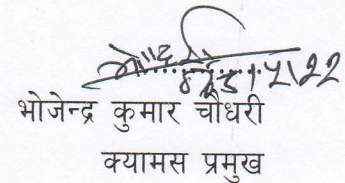 भोजेन्द्र कुमार चौधरी
क्यामस प्रमुख